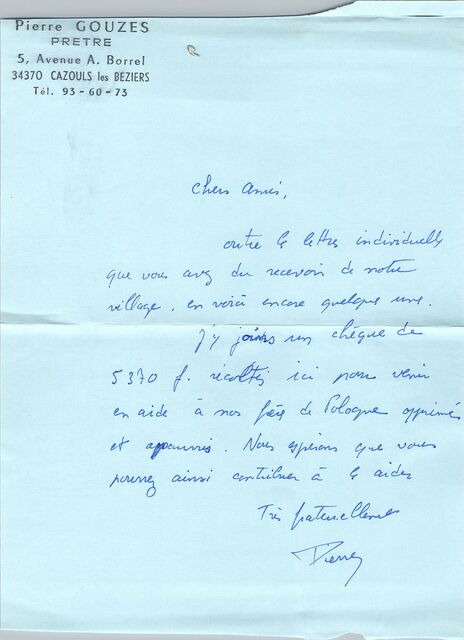 Pierre GOUZES
PRETRE
5, Avenue A. Borrel
34370 CAZOULS les BEZIERS
Tél. 93-60-73
Chers Amis,
outre les lettres individuelles
que vous avez du recevoir de notre
village, en voici encore quelques unes.
J'y joins un chèque de
5370 f. récoltés ici pour venir
en aide à nos frères de Pologne opprimés
et appauvris. Nous espérons que vous
pourrez ainsi contribuer à les aider
Très fraternellement
Pierre